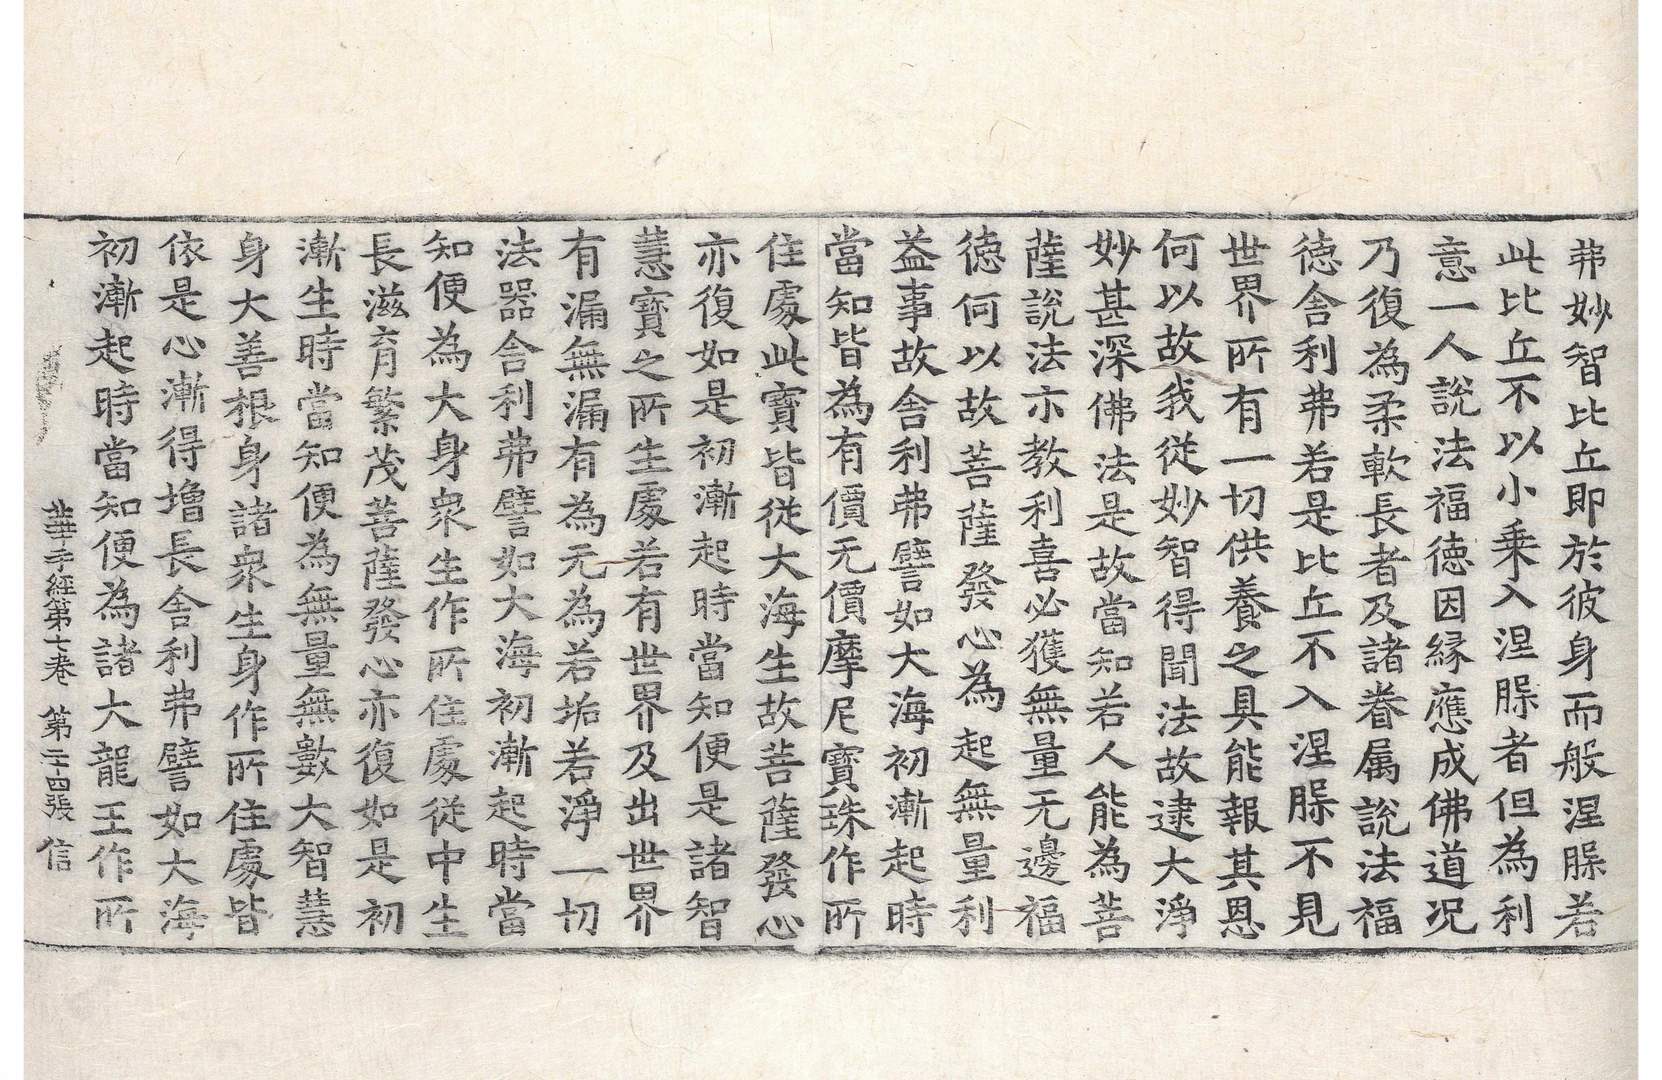 弗妙智比丘即於彼身而般涅𦙶若
此比丘不以小乗入涅𦙶者但為利
意一人說法福德因緣應成佛道况
乃復為柔軟長者及諸眷属說法福
德舎利弗若是比丘不入涅𦙶不見
世界所有一切供養之具能報其恩
何以故我從妙智得聞法故逮大淨
妙甚深佛法是故當知若人能為菩
薩說法示教利喜必獲無量无邊福
德何以故菩薩發心為起無量利
益事故舎利弗譬如大海初漸起時
當知皆為有價无價摩尼寶珠作所
住處此寶皆從大海生故菩薩發心
亦復如是初漸起時當知便是諸智
慧寶之所生處若有世界及出世界
有漏無漏有為无為若垢若淨一切
法器舎利弗譬如大海初漸起時當
知便為大身衆生作所住處從中生
長滋育繁茂菩薩發心亦復如是初
漸生時當知便為無量無數大智慧
身大善根身諸衆生身作所住處皆
依是心漸得增長舎利弗譬如大海
初漸起時當知便為諸大龍王作所
華手經第七卷 第二十四張 信